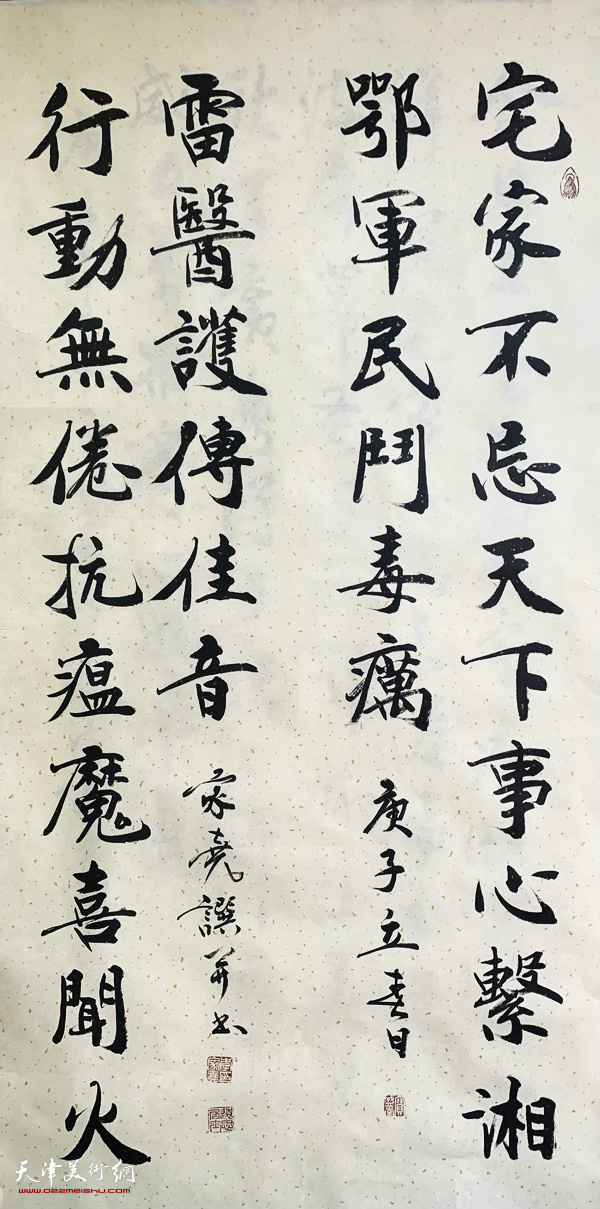 宅家不忌天下事心繫湘
鄂軍民鬥毒癘
庚子立春日
行動無倦抗瘟魔喜聞火
雷醫護傳佳音
家堯撰并书
天津美術網
www.022meishu.com